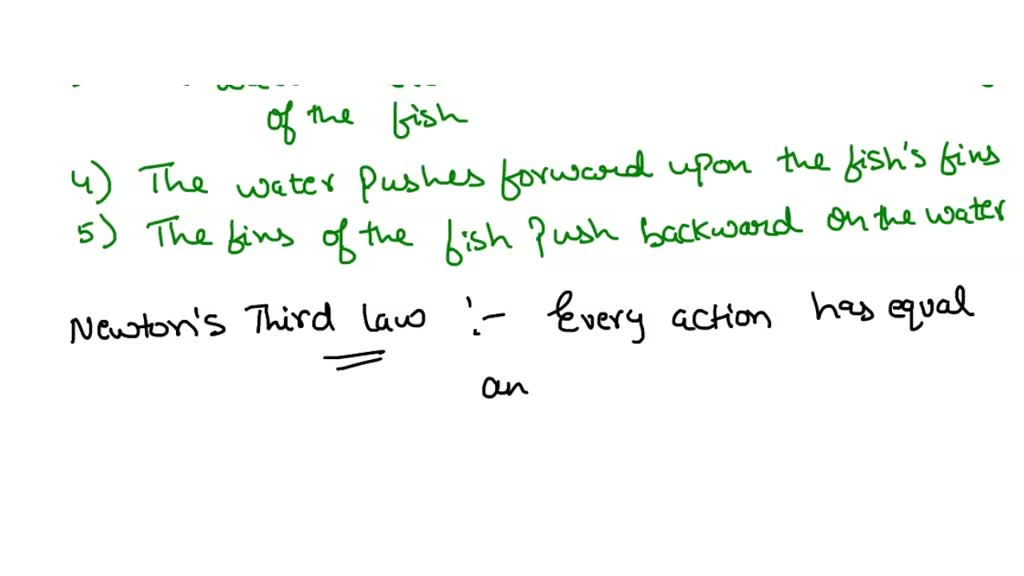 of the fish
4) The water pushes forward upon the fish's fins
5) The fins of the fish push backward on the water
Newton's Third law :- Every action has equal
an